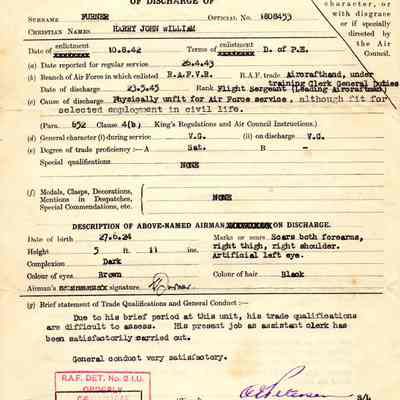 OF DISCHARGE OF
SURNAME FURNER OFFICIAL No. 1808453
CHRISTIAN NAMES HARRY JOHN WILLIAM
Date of enlistment 10.8.42 Terms of enlistment D. of P.E.
(a) Date reported for regular service 26.4.43
(b) Branch of Air Force in which enlisted R.A.F.V.R. R.A.F. trade Aircrafthand, under
training Clerk General Duties
Date of discharge 23.5.45 Rank Flight Sergeant (Leading Aircraftman)
(c) Cause of discharge Physically unfit for Air Force service, although fit for
selected employment in civil life.
(Para. 652 Clause 4(b) King's Regulations and Air Council Instructions.)
(d) General character (i) during service V.G. (ii) on discharge V.G.
(e) Degree of trade proficiency :— A Sat. B —
Special qualifications NONE
(f) Medals, Clasps, Decorations,
Mentions in Despatches,
Special Commendations, etc. NONE
DESCRIPTION OF ABOVE-NAMED AIRMAN ON DISCHARGE.
Date of birth 27.6.24 Marks or scars Scars both forearms,
Height 5 ft. 11 ins. right thigh, right shoulder.
Complexion Dark Artificial left eye.
Colour of eyes Brown Colour of hair Black
Airman's signature
(g) Brief statement of Trade Qualifications and General Conduct :—
Due to his brief period at this unit, his trade qualifications
are difficult to assess. His present job as assistant clerk has
been satisfactorily carried out.
General conduct very satisfactory.
R.A.F. DET. No. 2 I.U.
ORDERLY
S/L
character, or
with disgrace
or if specially
directed by
the Air
Council.